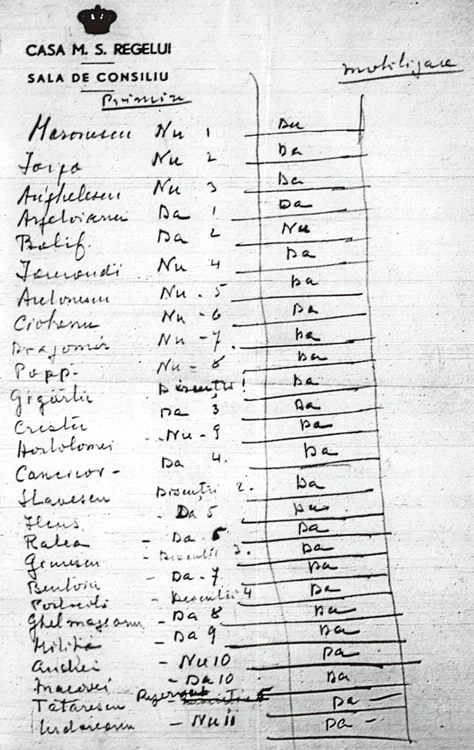 CASA M. S. REGELUI
SALA DE CONSILIU
Primire mobilizare
Nu 1 Da
Iorga Nu 2 Da
Anghelescu Nu 3 Da
Argetoianu Da 1 Da
Balif Da 2 Nu
Iamandi Nu 4 Da
Antonescu Nu - 5 Da
Ciobanu Nu - 6 Da
Dragomir Nu - 7 Da
Popp - Nu - 8 Da
Gigurtu Discuții 1 Da
Cristu Da 3 Da
Hortolomei - Nu - 9 Da
Cancicov - Da 4. Da
Slavescu Discuții 2. Da
Ilcus - Da 5 Da
Ralea - Da - 6 Da
Giurescu - Discutii 3. Da
Bentoiu - Da - 7 Da
Portocală - Discutii 4 Da
Ghelmegeanu - Da 8 Da
- Da 9 Da
Andrei - Nu 10 Da
Macovei - Da 10 Da
Tatarescu Rezervat Da -
Urdareanu - Nu 11 Da -